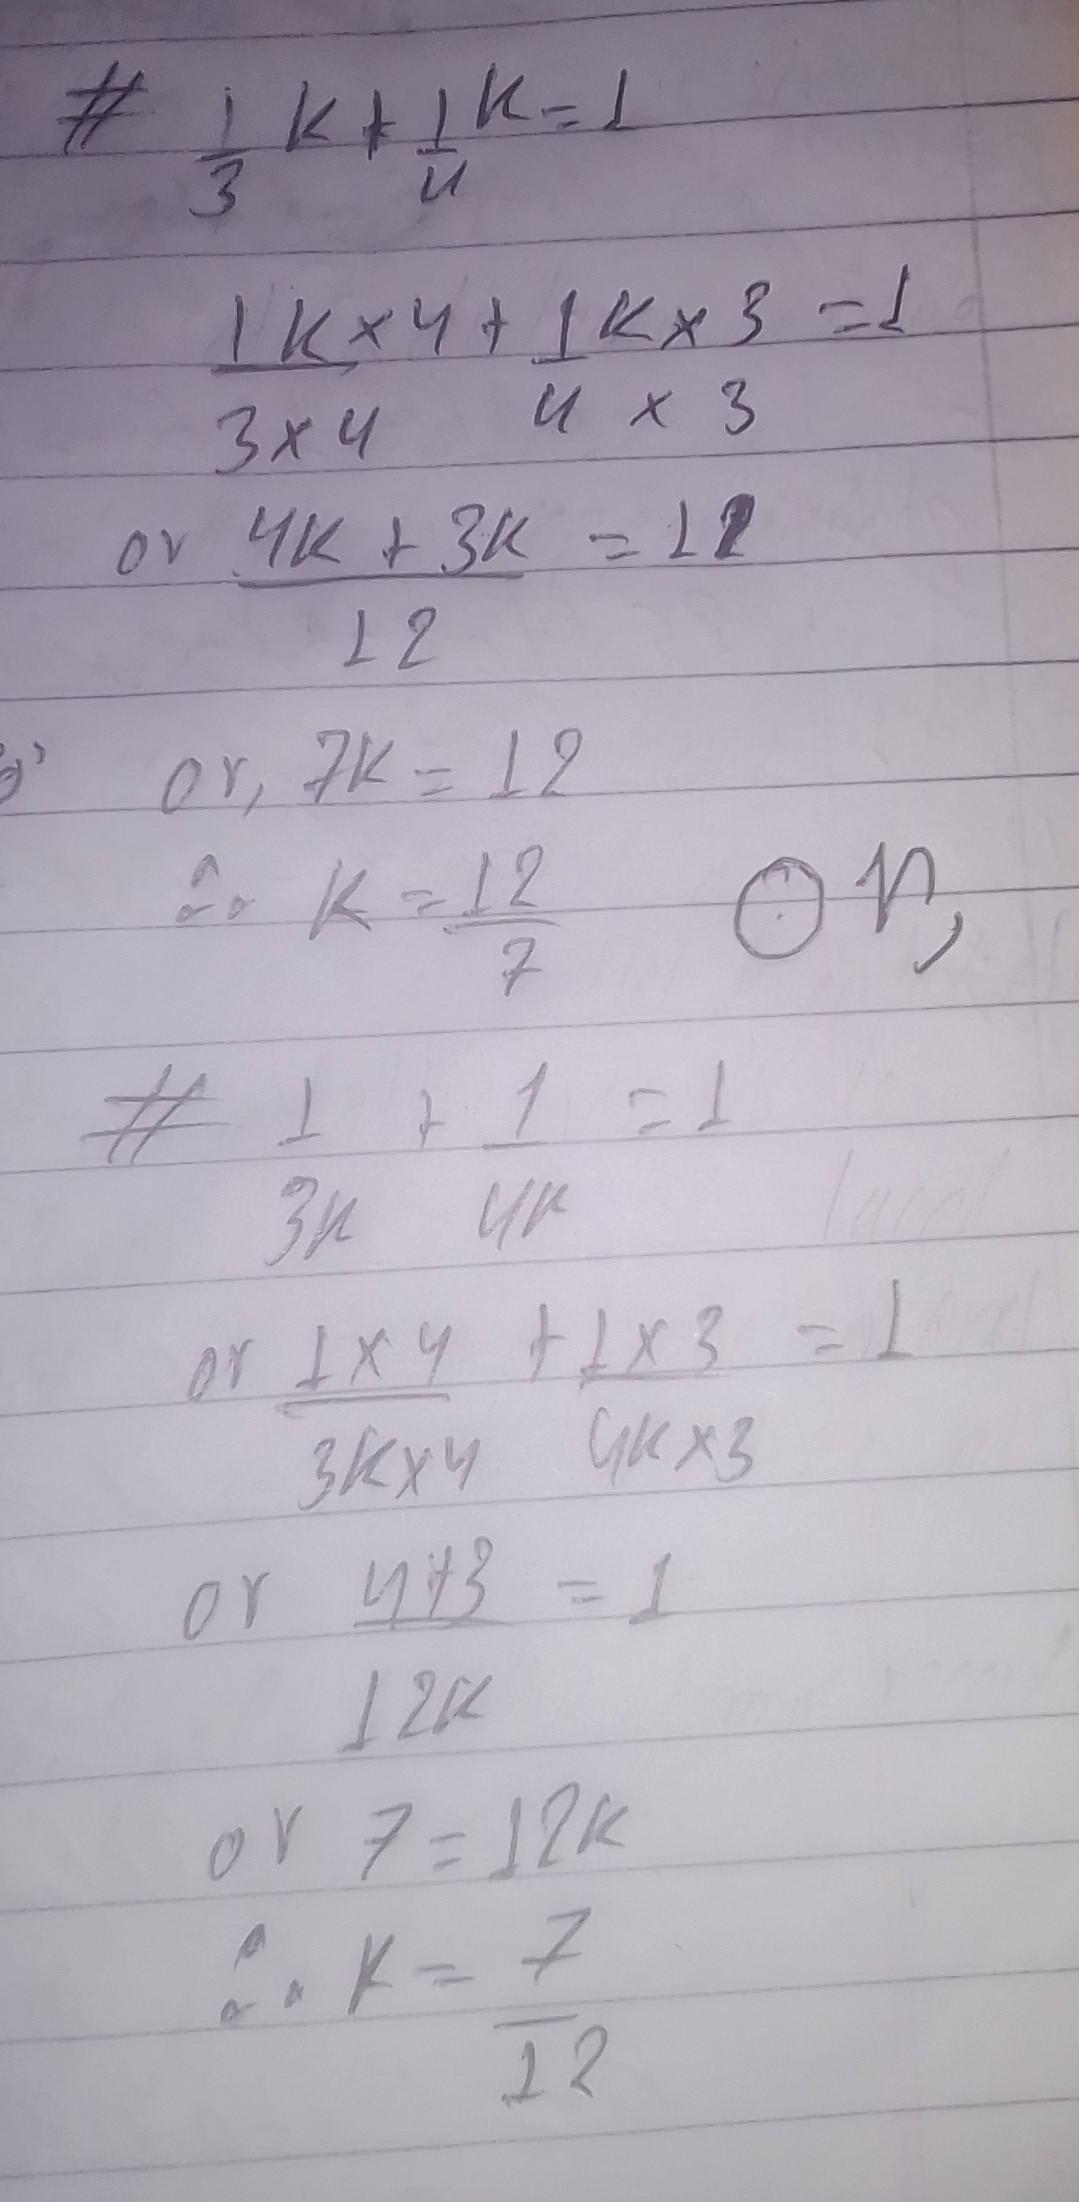 # 1/3 k + 1/4 k = 1
1k×4/3×4 + 1k×3/4×3 = 1
or 4k + 3k/12 = 12
or, 7k = 12
∴ k = 12/7
# 1/3k + 1/4k = 1
or 1×4/3k×4 + 1×3/4k×3 = 1
or 4+3/12k = 1
or 7 = 12k
∴ k = 7/12